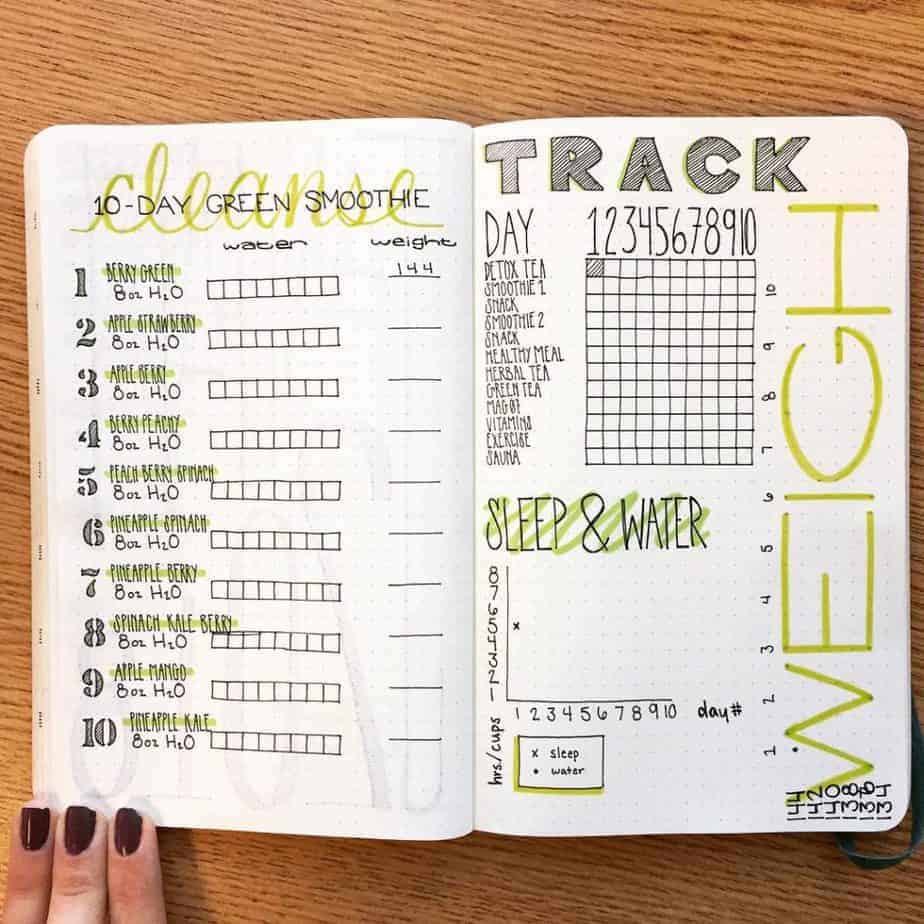 cleanse
10-DAY GREEN SMOOTHIE
water weight
1 BERRY GREEN 144
8oz H2O
2 APPLE STRAWBERRY
8oz H2O
3 APPLE BERRY
8oz H2O
4 BERRY PEACHY
8oz H2O
5 PEACH BERRY SPINACH
8oz H2O
6 PINEAPPLE SPINACH
8oz H2O
7 PINEAPPLE BERRY
8oz H2O
8 SPINACH KALE BERRY
8oz H2O
9 APPLE MANGO
8oz H2O
10 PINEAPPLE KALE
8oz H2O
TRACK
DAY 1 2 3 4 5 6 7 8 9 10
DETOX TEA
SMOOTHIE 1
SNACK
SMOOTHIE 2
SNACK
HEALTHY MEAL
HERBAL TEA
GREEN TEA
MAG07
VITAMINS
EXERCISE
SAUNA
SLEEP & WATER
8
7
6
5
4
3
2
1
hrs/cups
1 2 3 4 5 6 7 8 9 10 day#
x sleep
• water
WEIGH
1 2 3 4 5 6 7 8 9 10
144
142
140
138
136
134